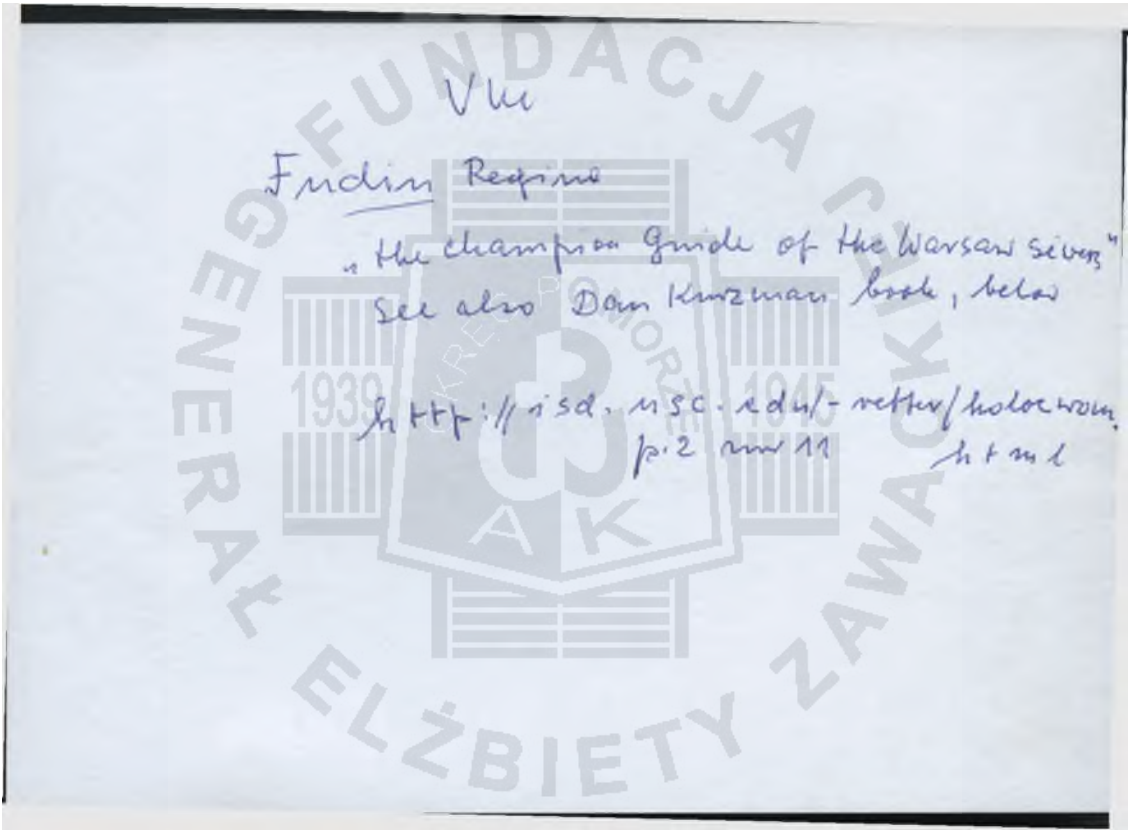 VIII
Fudin Regina
„the champion Guide of the Warsaw sivers"
see also Dan Kurzman book, below
http://isd.usc.edu/~retter/holocwom.
p.2 nw 11 html
FUNDACJA GENERAŁ ELŻBIETY ZAWACKIEJ
OKRĘG POMORZE
1939 1945
AK